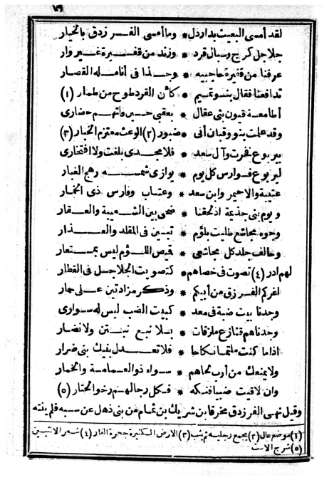 ٧٩
لقد أمسى البعيث بدار ذل * وما أمسى الفرزدق بالخيار
جلاجل كرج وسبال قرد * وزند من قفيرة غير وار
عرفنا من قفيرة حاجبيه * وجذا فى أنامله القصار
تدافعنا فقال بنو تميم * كأن القرد طوح من طمار (١)
أطامعة قيون بنى عقال * بعقبى حين فاتهم حضارى
وقد علمت بنو وقبان أنى * ضبور (٢) الوعث معتزم الخبار (٣)
بيربوع فخرت وآل سعد * فلا مجدى بلغت ولا افتخارى
ليربوع فوارس كل يوم * يوارى شمسه رهج الغبار
عتيبة والاحيمر وابن سعد * وعتاب وفارس ذى الخمار
ويوم بنى جذيمة اذ لحقنا * ضحى بين الشعيبة والعقار
وجوه مجاشع طليت بلؤم * تبين فى المقلد والعذار
وحالف جلد كل مجاشعى * قميص اللؤم ليس بمستعار
لهم أدر (٤) تصوت فى خصاهم * كتصويت الجلاجل فى القطار
أغركم الفرزدق من أبيكم * وذكر مزادتين على حمار
وجدنا بيت ضبة فى معد * كبيت الضب ليس له سوارى
وجدناهم قنازع ملزقات * بلا نبع نبتن ولا نضار
اذا ما كنت ملتمسا نكاحا * فلا تعدل بنيك بنى ضرار
ولا يمنعك من أرب لحاهم * سواء ذو العمامة والخمار
وان لاقيت ضبيا فنكه * فكل رجالهم رخو الحتار (٥)
وقيل نهى الفرزدق مخرقا بن شريك بن تمام من بنى ذهل عن سبه فلم ينته
(١) موضع عال (٢) يجمع رجليه ثم يثب (٣) الارض الكثيرة جحرة الفار (٤)
(٥) شرج الاست